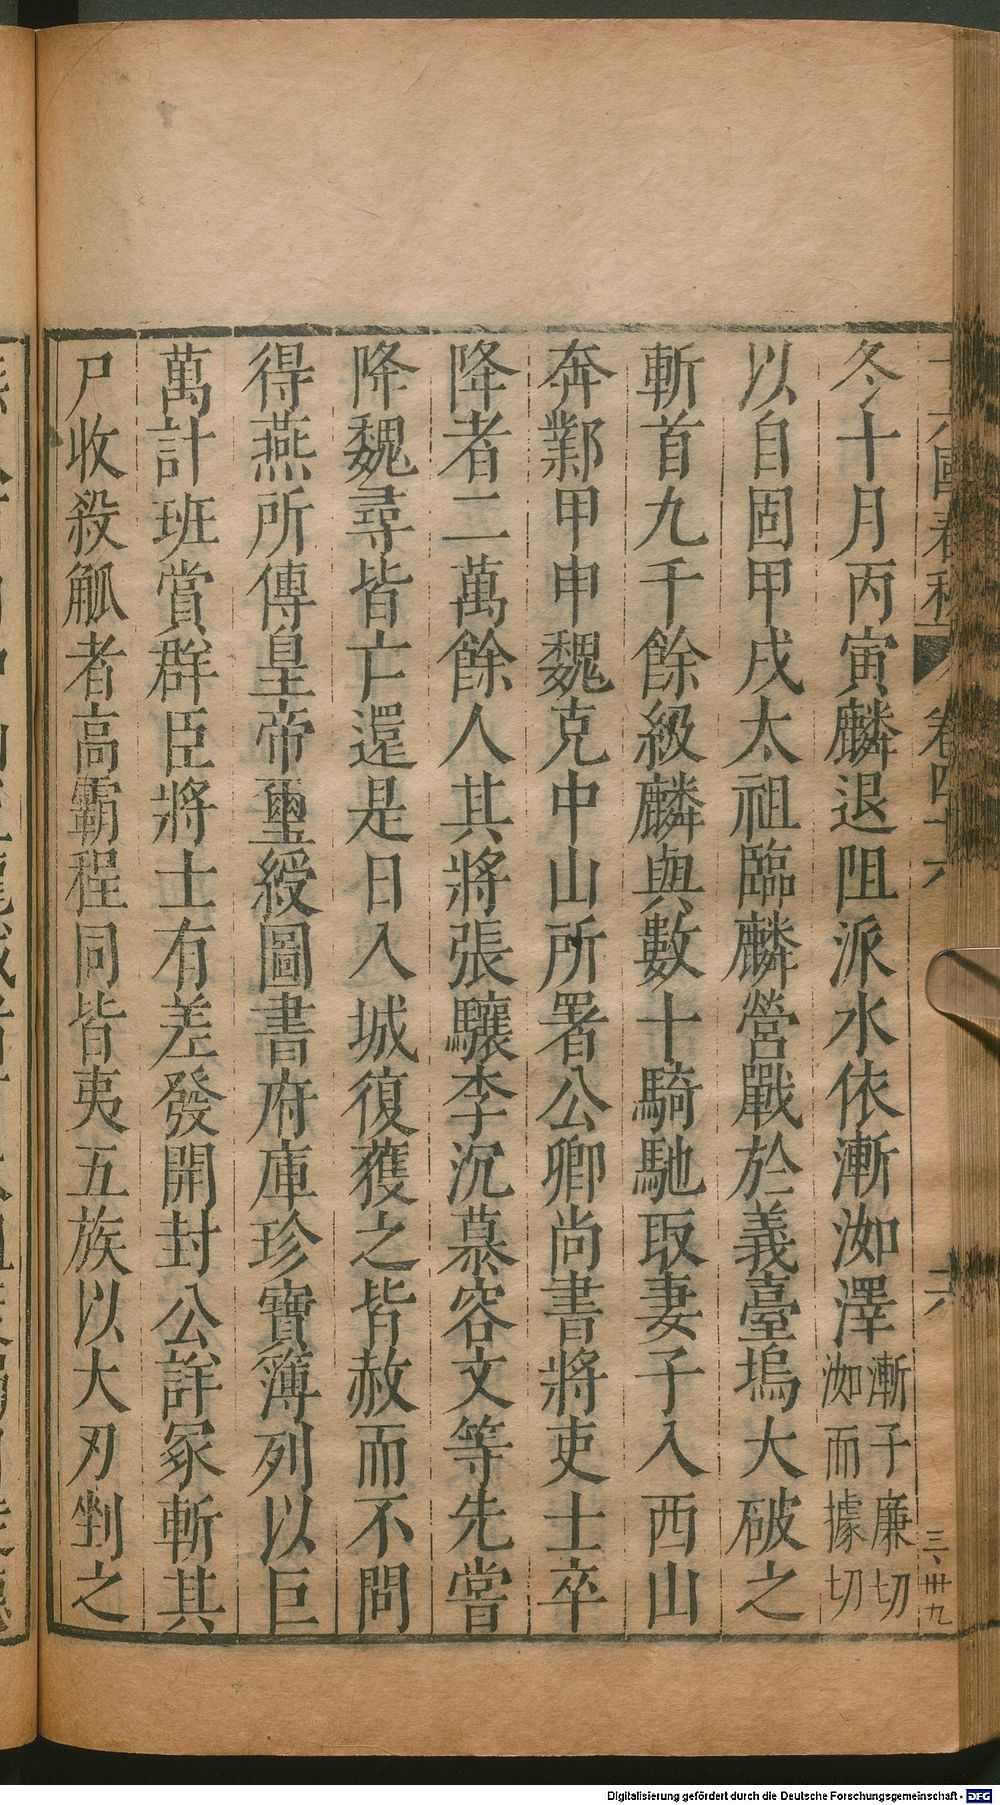 十六國春秋 卷四十六 六 三、卅九
冬十月丙寅麟退阻派水依漸洳澤漸子廉切洳而據切
以自固甲戌太祖臨麟營戰於義臺塢大破之
斬首九千餘級麟與數十騎馳取妻子入西山
奔鄴甲申魏克中山所署公卿尚書將吏士卒
降者二萬餘人其將張驤李沉慕容文等先嘗
降魏尋皆亡還是日入城復獲之皆赦而不問
得燕所傳皇帝璽綬圖書府庫珍寶簿列以巨
萬計班賞群臣將士有差發開封公詳冢斬其
尸收殺觚者高霸程同皆夷五族以大刃剉之
Digitalisierung gefördert durch die Deutsche Forschungsgemeinschaft - DFG